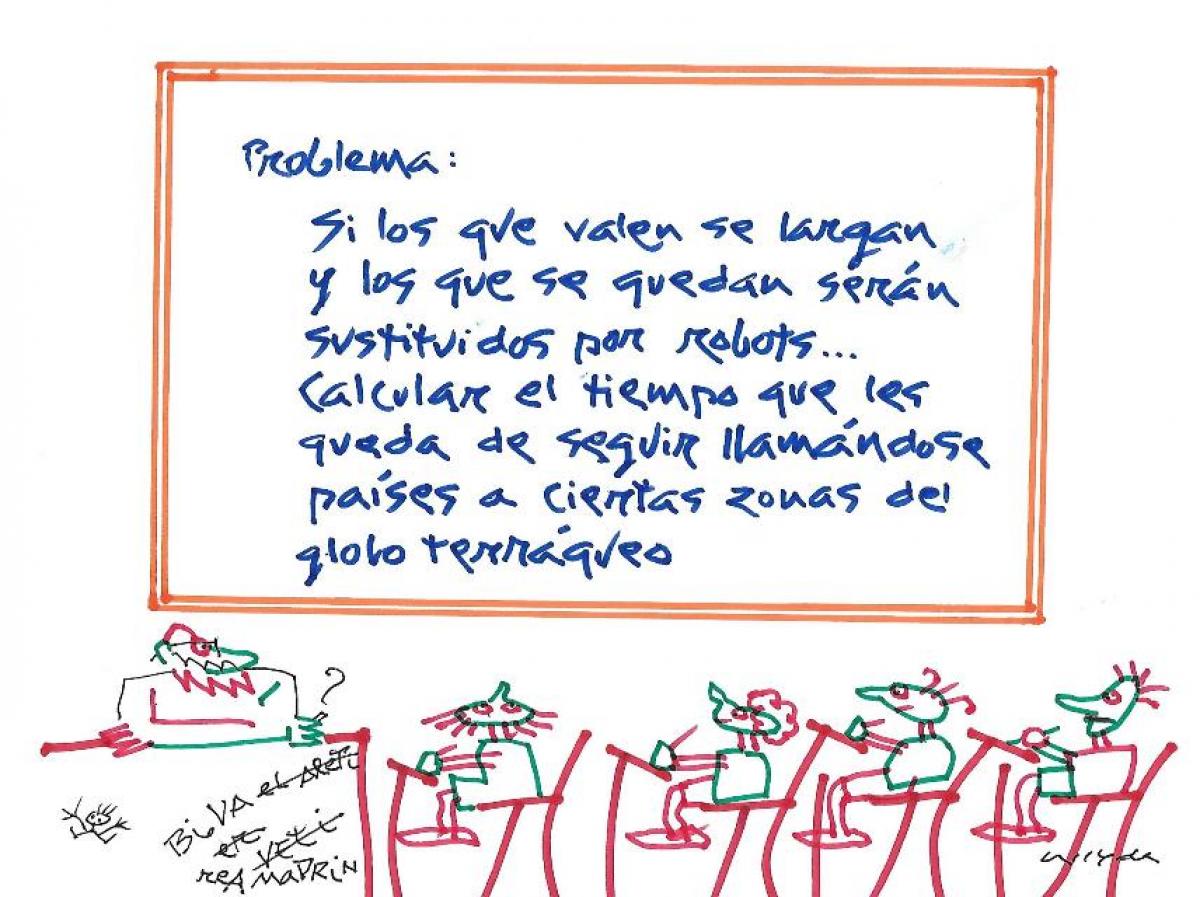 Problema:
Si los que valen se largan
y los que se quedan serán
sustituidos por robots...
Calcular el tiempo que les
queda de seguir llamándose
países a ciertas zonas del
globo terráqueo
?
BiVA el
VETi
reAMaDRiN